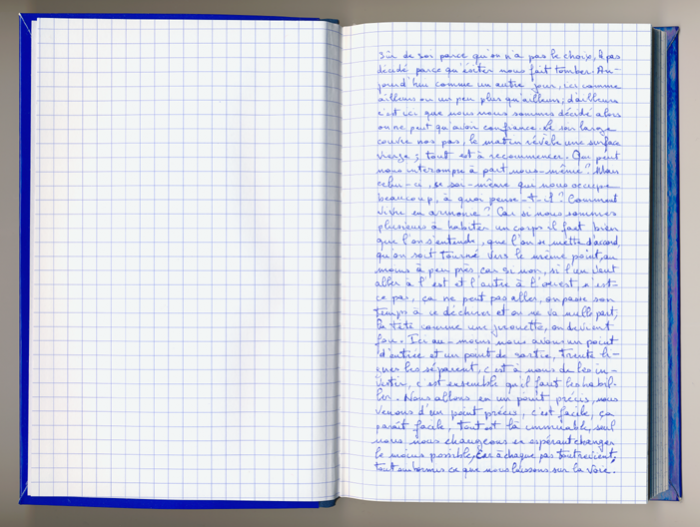 sûr de son parce qu'on n'a pas le choix, pas
décidé parce qu'hésiter nous fait tomber. Au-
jourd'hui comme un autre jour, ici comme
ailleurs ou un peu plus qu'ailleurs, d'ailleurs
c'est ici que nous nous sommes décidé alors
on ne peut qu'avoir confiance. Le soir largue
couvre nos pas, le matin révèle une surface
vierge ; tout est à recommencer. Qui peut
nous interrompre à part nous-même ? Mais
celui-ci, ce soi-même qui nous occupe
beaucoup, à quoi pense-t-il ? Comment
vivre en armoire ? Car si nous sommes
plusieurs à habiter un corps il faut bien
que l'on s'entende, que l'on se mette d'accord,
qu'on soit tourné vers le même point, au
moins à peu près car si non, si l'un veut
aller à l'est et l'autre à l'ouest, n'est-
ce pas, ça ne peut pas aller, on passe son
temps à se déchirer et on ne va nulle part,
la tête comme une girouette, on devient
fou. Ici au moins nous avons un point
d'entrée et un point de sortie, trente li-
gnes les séparent, c'est à nous de les in-
vestir, c'est ensemble qu'il faut les habil-
ler. Nous allons en un point précis, nous
venons d'un point précis, c'est facile, ça
paraît facile, tout est là immuable, seul
nous nous changeons en espérant changer
le moins possible, car à chaque pas tout revient,
tout au bornes ce que nous laissons sur la voie.